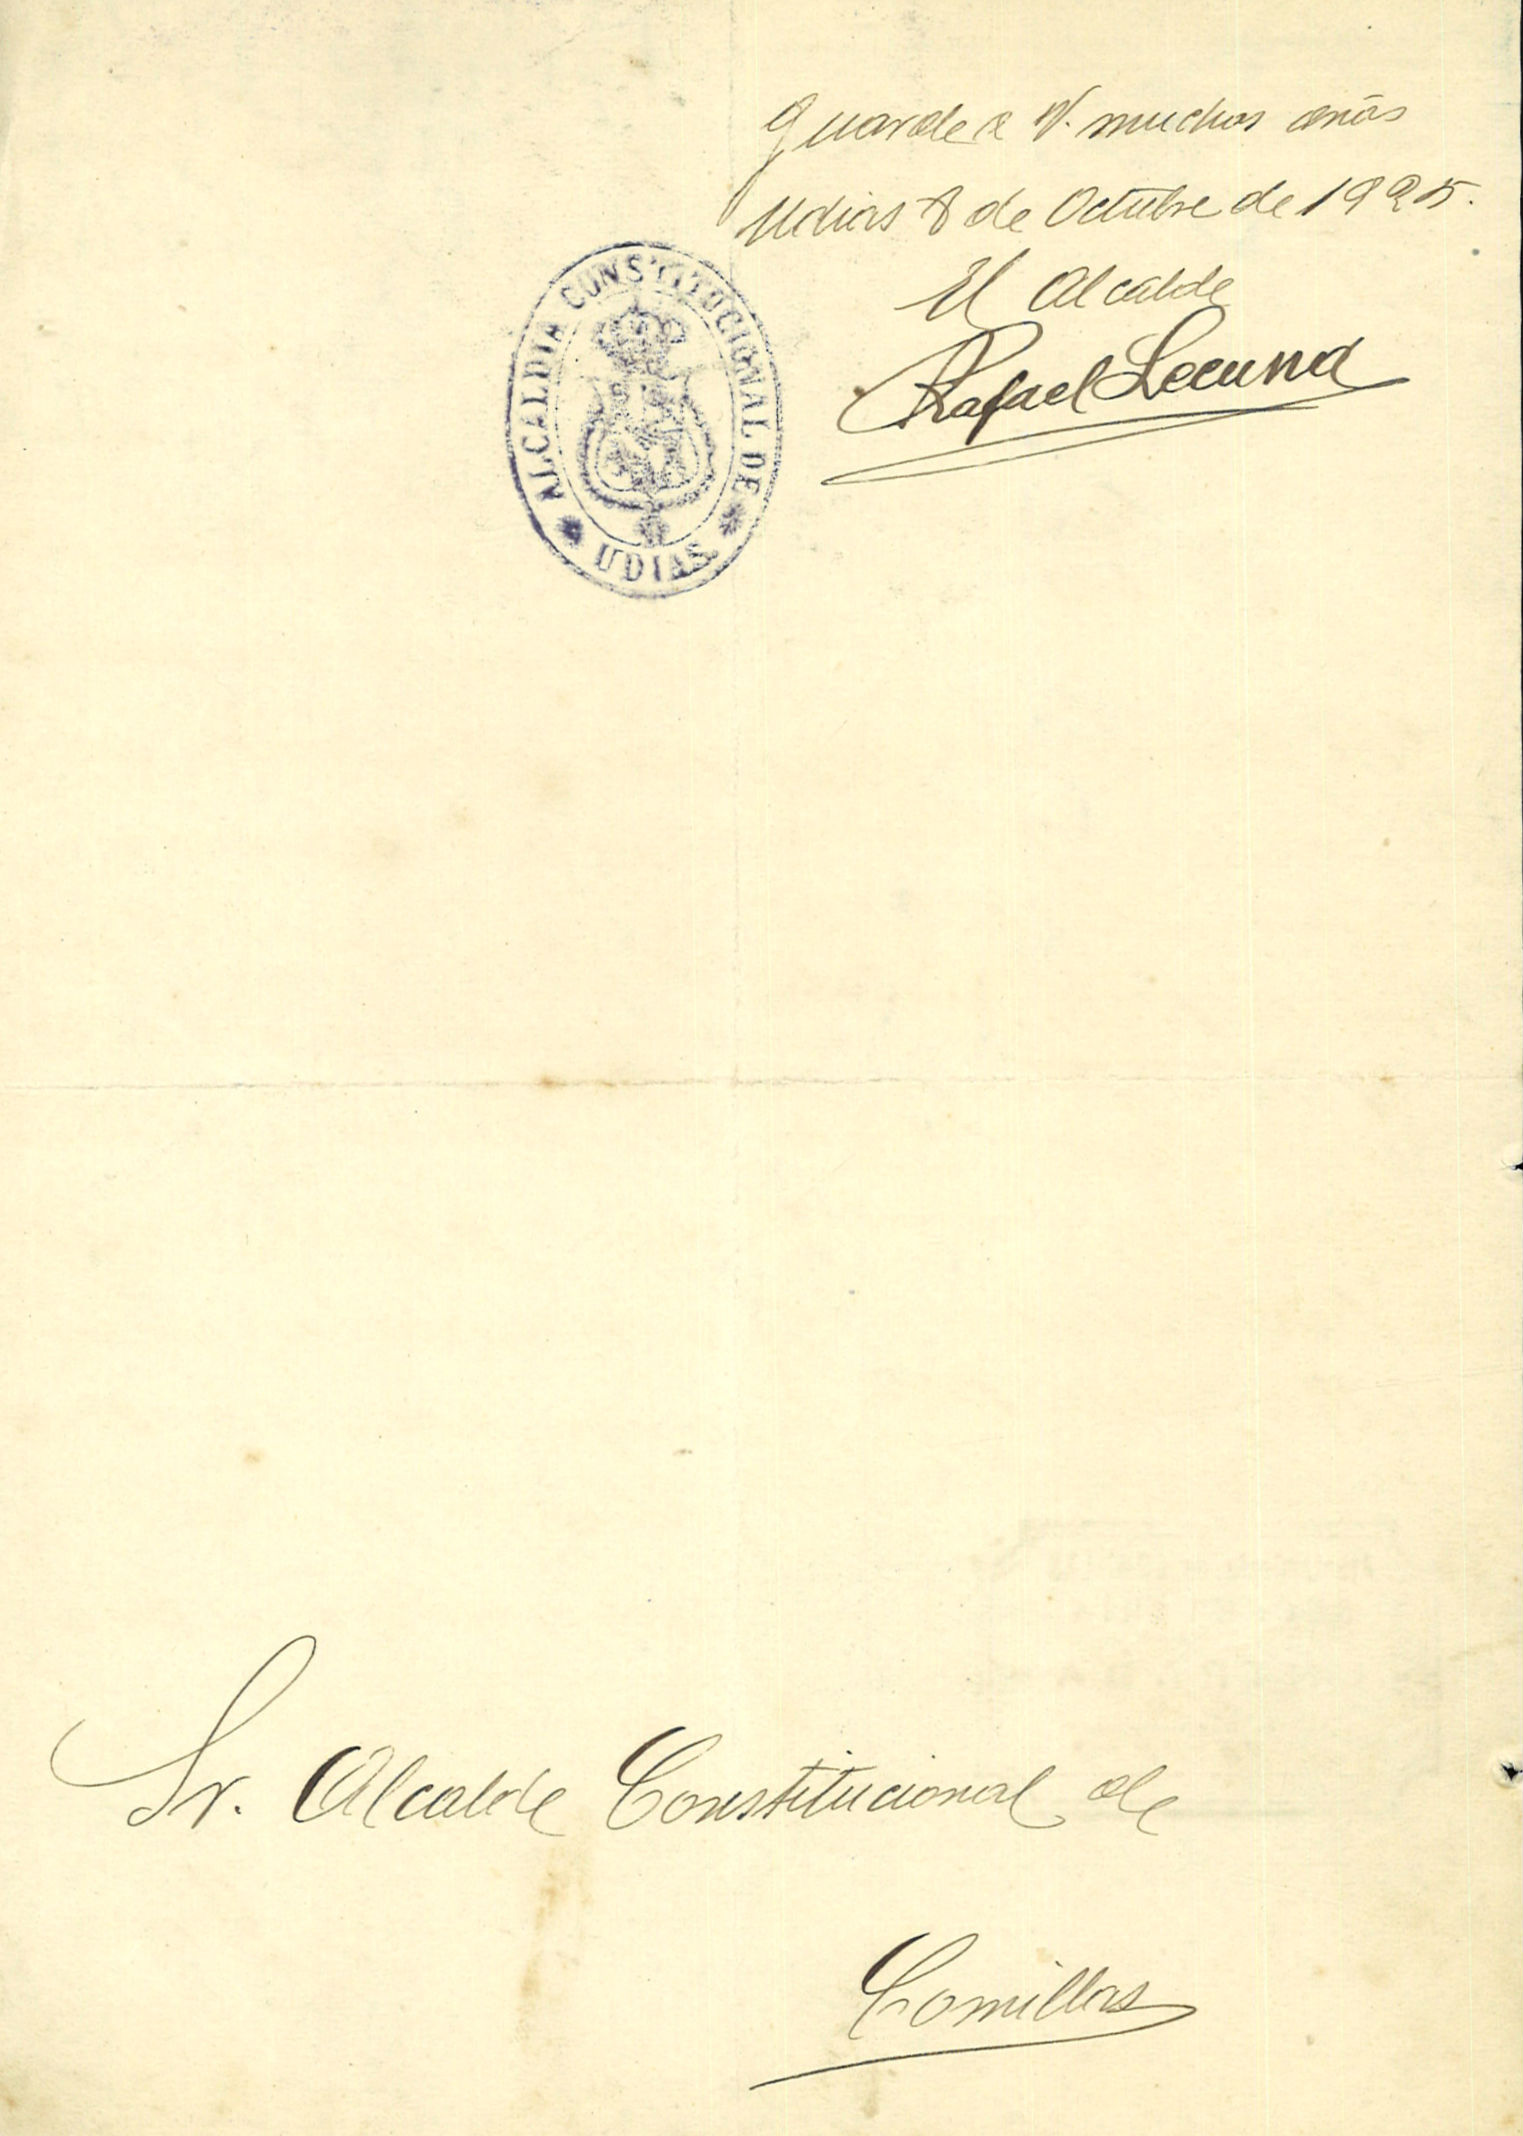 guarde a V. muchos años
Udias 8 de Octubre de 1925.
El Alcalde
Rafael Lecuna
ALCALDIA CONSTITUCIONAL DE
UDIAS
Sr. Alcalde Constitucional de
Comillas